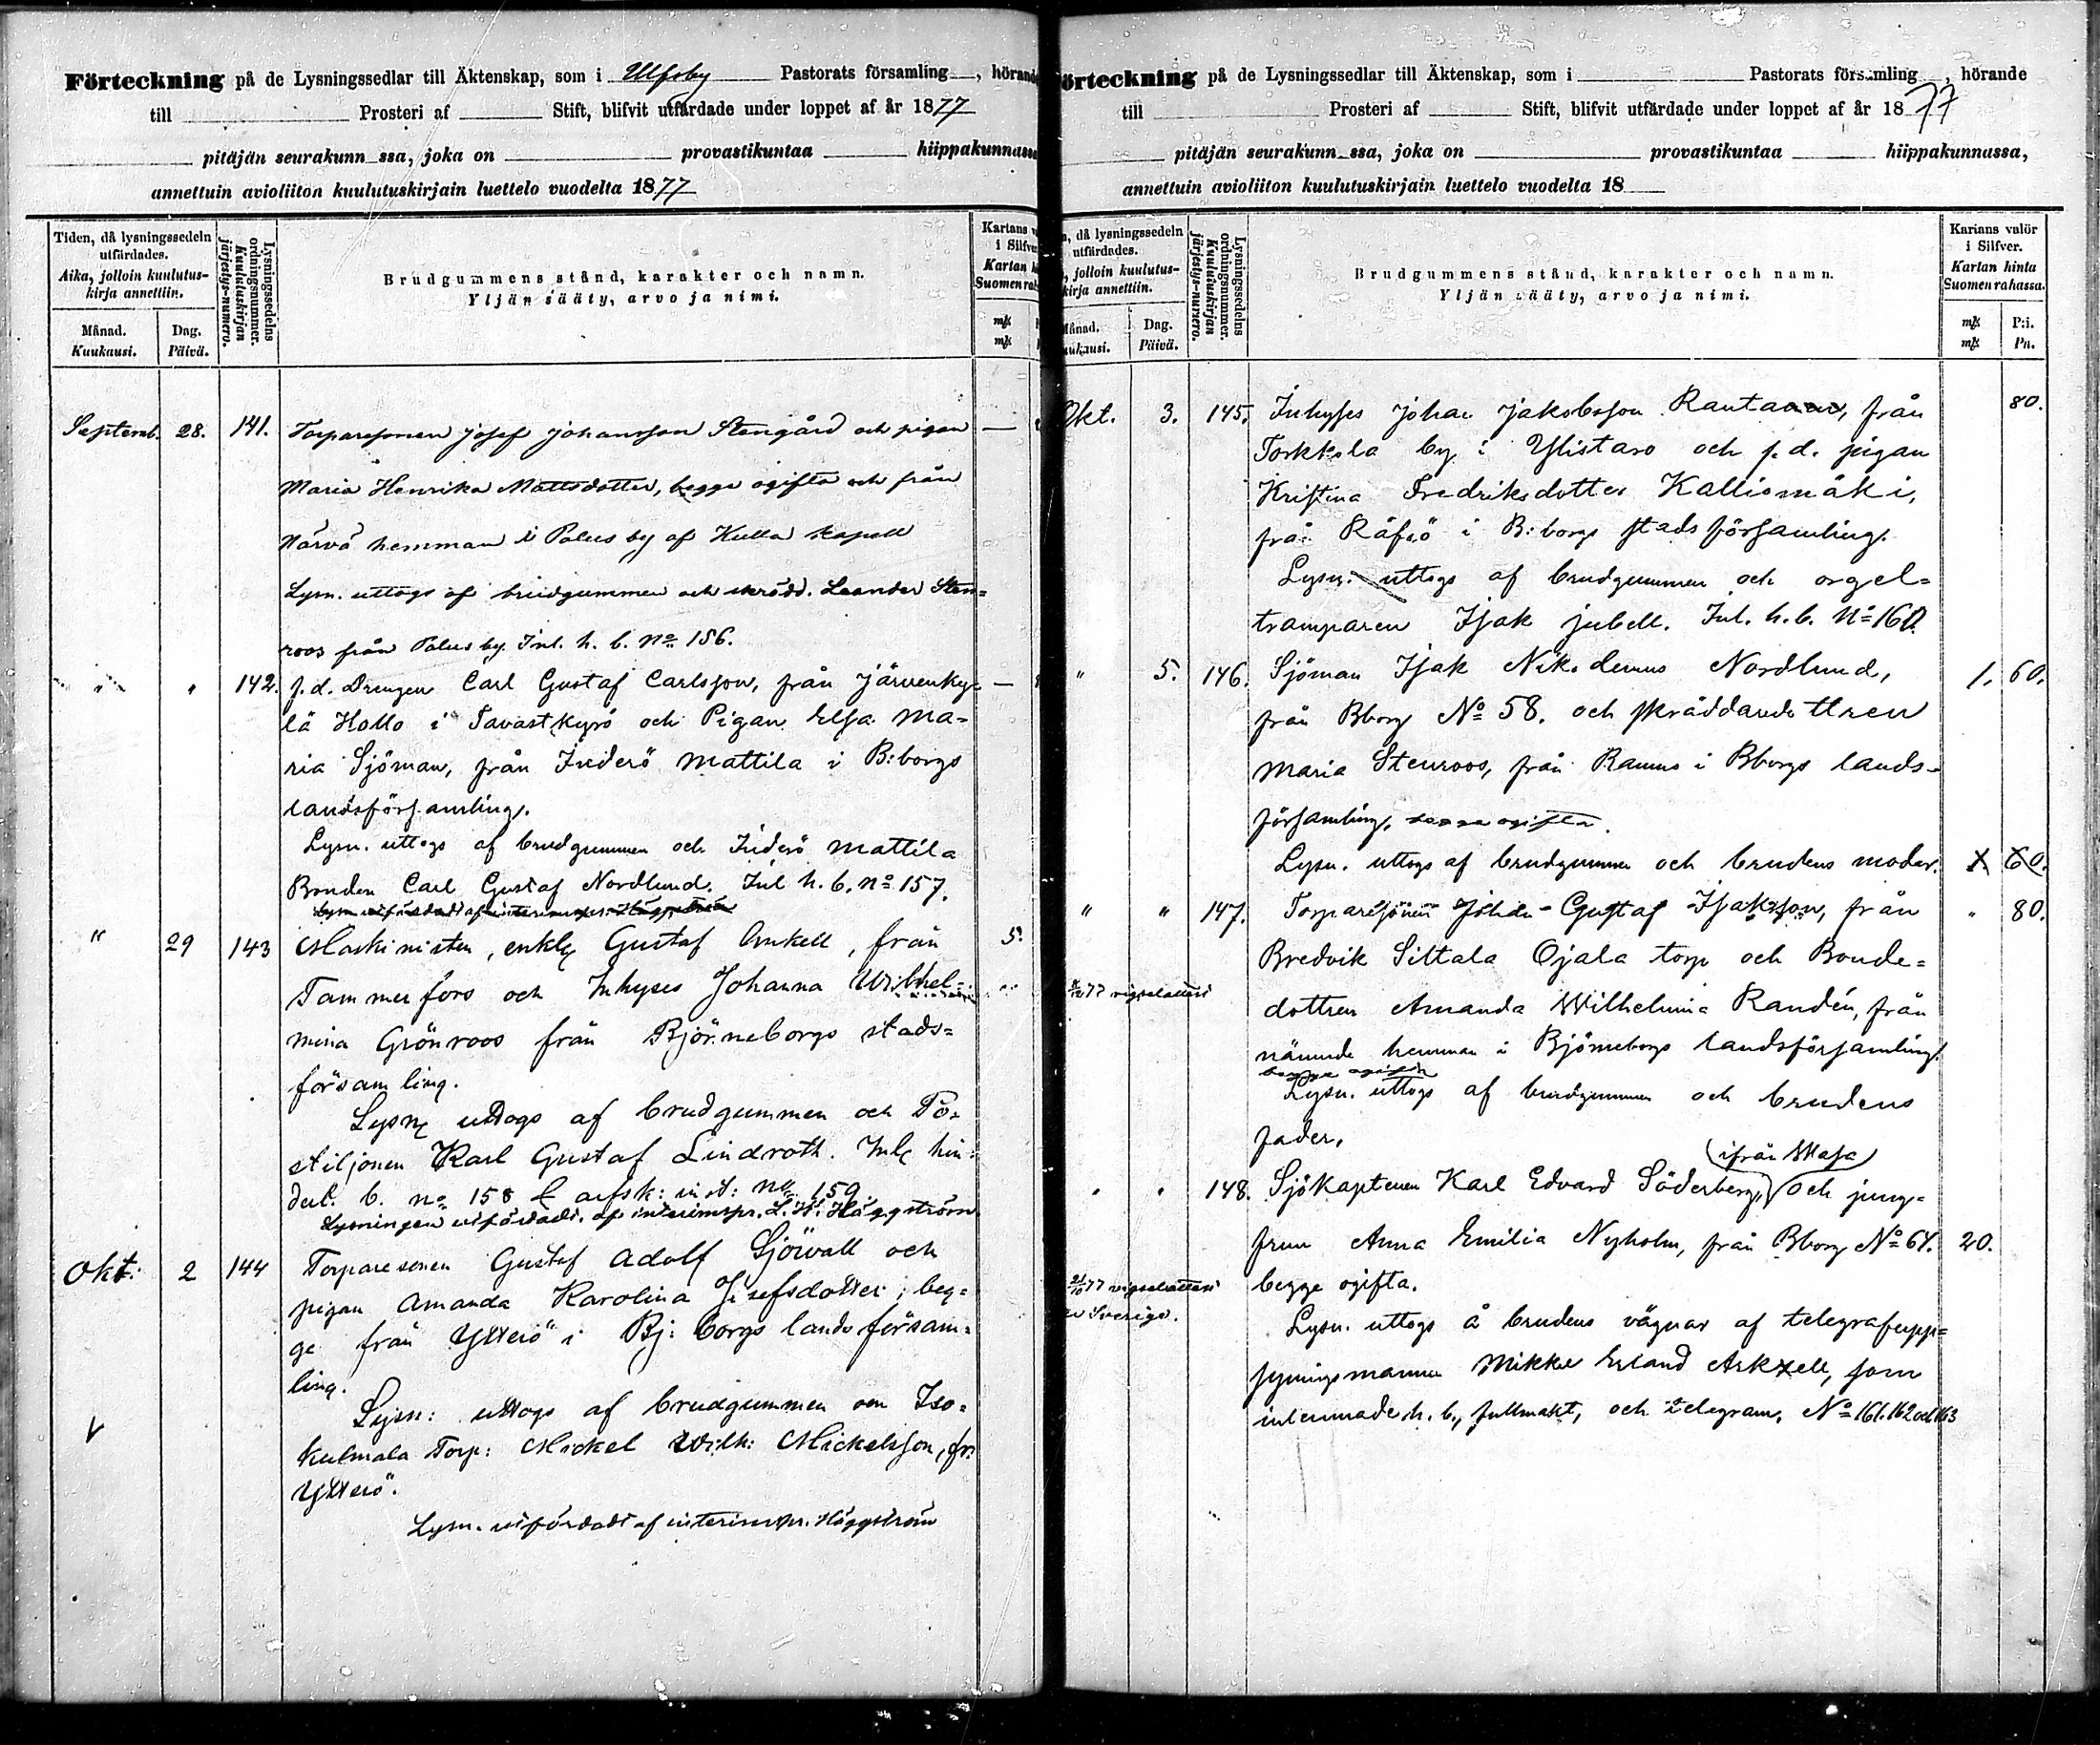 Förteckning på de Lysningssedlar till Äktenskap, som i Ulfsby Pastorats församling, hörande
till Prosteri af Stift, blifvit utfärdade under loppet af år 1877
pitäjän seurakunn ssa, joka on provastikuntaa hiippakunnassa
annettuin avioliiton kuulutuskirjain luettelo vuodelta 1877
Tiden, då lysningssedeln utfärdades.
Aika, jolloin kuulutus-kirja annettiin.
Månad. Kuukausi.
Dag. Päivä.
Lysningssedelns ordningsnummer.
Kuulutuskirjan järjestys-numero.
Brudgummens stånd, karakter och namn.
Yljän sääty, arvo ja nimi.
Kartans
i Silfver
Kartan
Suomen
mk
mk
Septemb. 28. 141. Torparesonen Josef Johansson Stengård och pigan —
Maria Henrika Mattsdotter, begge ogifta och från
Närvä hemman i Palus by af Kulla kapell
Lysn. uttogs af brudgummen och skrädd. Leander Sten=
roos från Palus by. Inl. h. b. No 156.
" " 142. f. d. Drengen Carl Gustaf Carlsson, från Järvenky= —
lä Hollo i Tavastkyrö och Pigan Elsa Ma=
ria Sjöman, från Inderö Mattila i B:borgs
landsförsamling.
Lysn. uttogs af brudgummen och Inderö Mattila
Bonden Carl Gustaf Nordlund. Inl h. b. No 157.
Lysn utfärdadt af interimspr. Häggström
" 29 143 Maskinisten, enkl. Gustaf Ankell, från 5.
Tammerfors och Inhyses Johanna Wilhel=
mina Grönroos från Björneborgs stads=
församling.
Lysn. uttogs af brudgummen och Po=
stiljonen Karl Gustaf Lindroth. Inl. hin=
derl. b. no 158 & afsk: inst: no 159
Lysningen utfärdadt. af interimspr. L. H. Häggström
Okt: 2 144 Torparesonen Gustaf Adolf Sjövall och
pigan Amanda Karolina Josefsdotter, beg=
ge från Ytterö i Bj:borgs landsförsam=
ling.
Lysn: uttogs af brudgummen och Iso=
kulmala Torp: Mickel Wilh: Mickelsson, fr.
Ytterö.
Lysn. utfärdadt af interimspr. Häggström
Förteckning på de Lysningssedlar till Äktenskap, som i Pastorats församling, hörande
till Prosteri af Stift, blifvit utfärdade under loppet af år 1877
pitäjän seurakunn ssa, joka on provastikuntaa hiippakunnassa,
annettuin avioliiton kuulutuskirjain luettelo vuodelta 18
, då lysningssedeln utfärdades.
, jolloin kuulutus-kirja annettiin.
Månad.
Dag. Päivä.
Lysningssedelns ordningsnummer.
Kuulutuskirjan järjestys-numero.
Brudgummens stånd, karakter och namn.
Yljän sääty, arvo ja nimi.
Kartans valör
i Silfver.
Kartan hinta
Suomen rahassa.
mk P:i.
mk Pn.
Okt. 3. 145. Inhyses Johan Jakobsson Rautanen, från 80.
Torkkola by i Ylistaro och f. d. pigan
Kristina Fredriksdotter Kallismäki,
från Räfsö i B:borgs stadsförsamling.
Lysn. uttogs af brudgummen och orgel=
tramparen Isak Jubell. Inl. h. b. No 160.
" 5. 146. Sjöman Isak Nikodemus Nordlund, 1. 60.
från Bborg No 58. och skräddaredottren
Maria Stenroos, från Raumo i Bborgs lands=
församling. begge ogifta.
Lysn. uttogs af brudgummen och brudens moder. 1. 60.
" " 147. Torparesonen Johan Gustaf Isaksson, från " 80.
Bredvik Sittala Ojala torp och Bonde=
77 vigselattest
dottren Amanda Wilhelmina Randén, från
nämnde hemman i Björneborgs landsförsamling.
begge ogifta
Lysn. uttogs af brudgummen och brudens
fader.
(ifrån Wasa)
" " 148. Sjökaptenen Karl Edvard Söderberg, och jung=
frun Anna Emilia Nyholm, från Bborg No 64. 20.
77 vigselattest
begge ogifta.
Sverige.
Lysn. uttogs å brudens vägnar af telegrafupp=
syningsmannen Mikkel Erland Askxell, som
inlemnade h. b., fullmakt, och telegram, No 161. 162 och 163